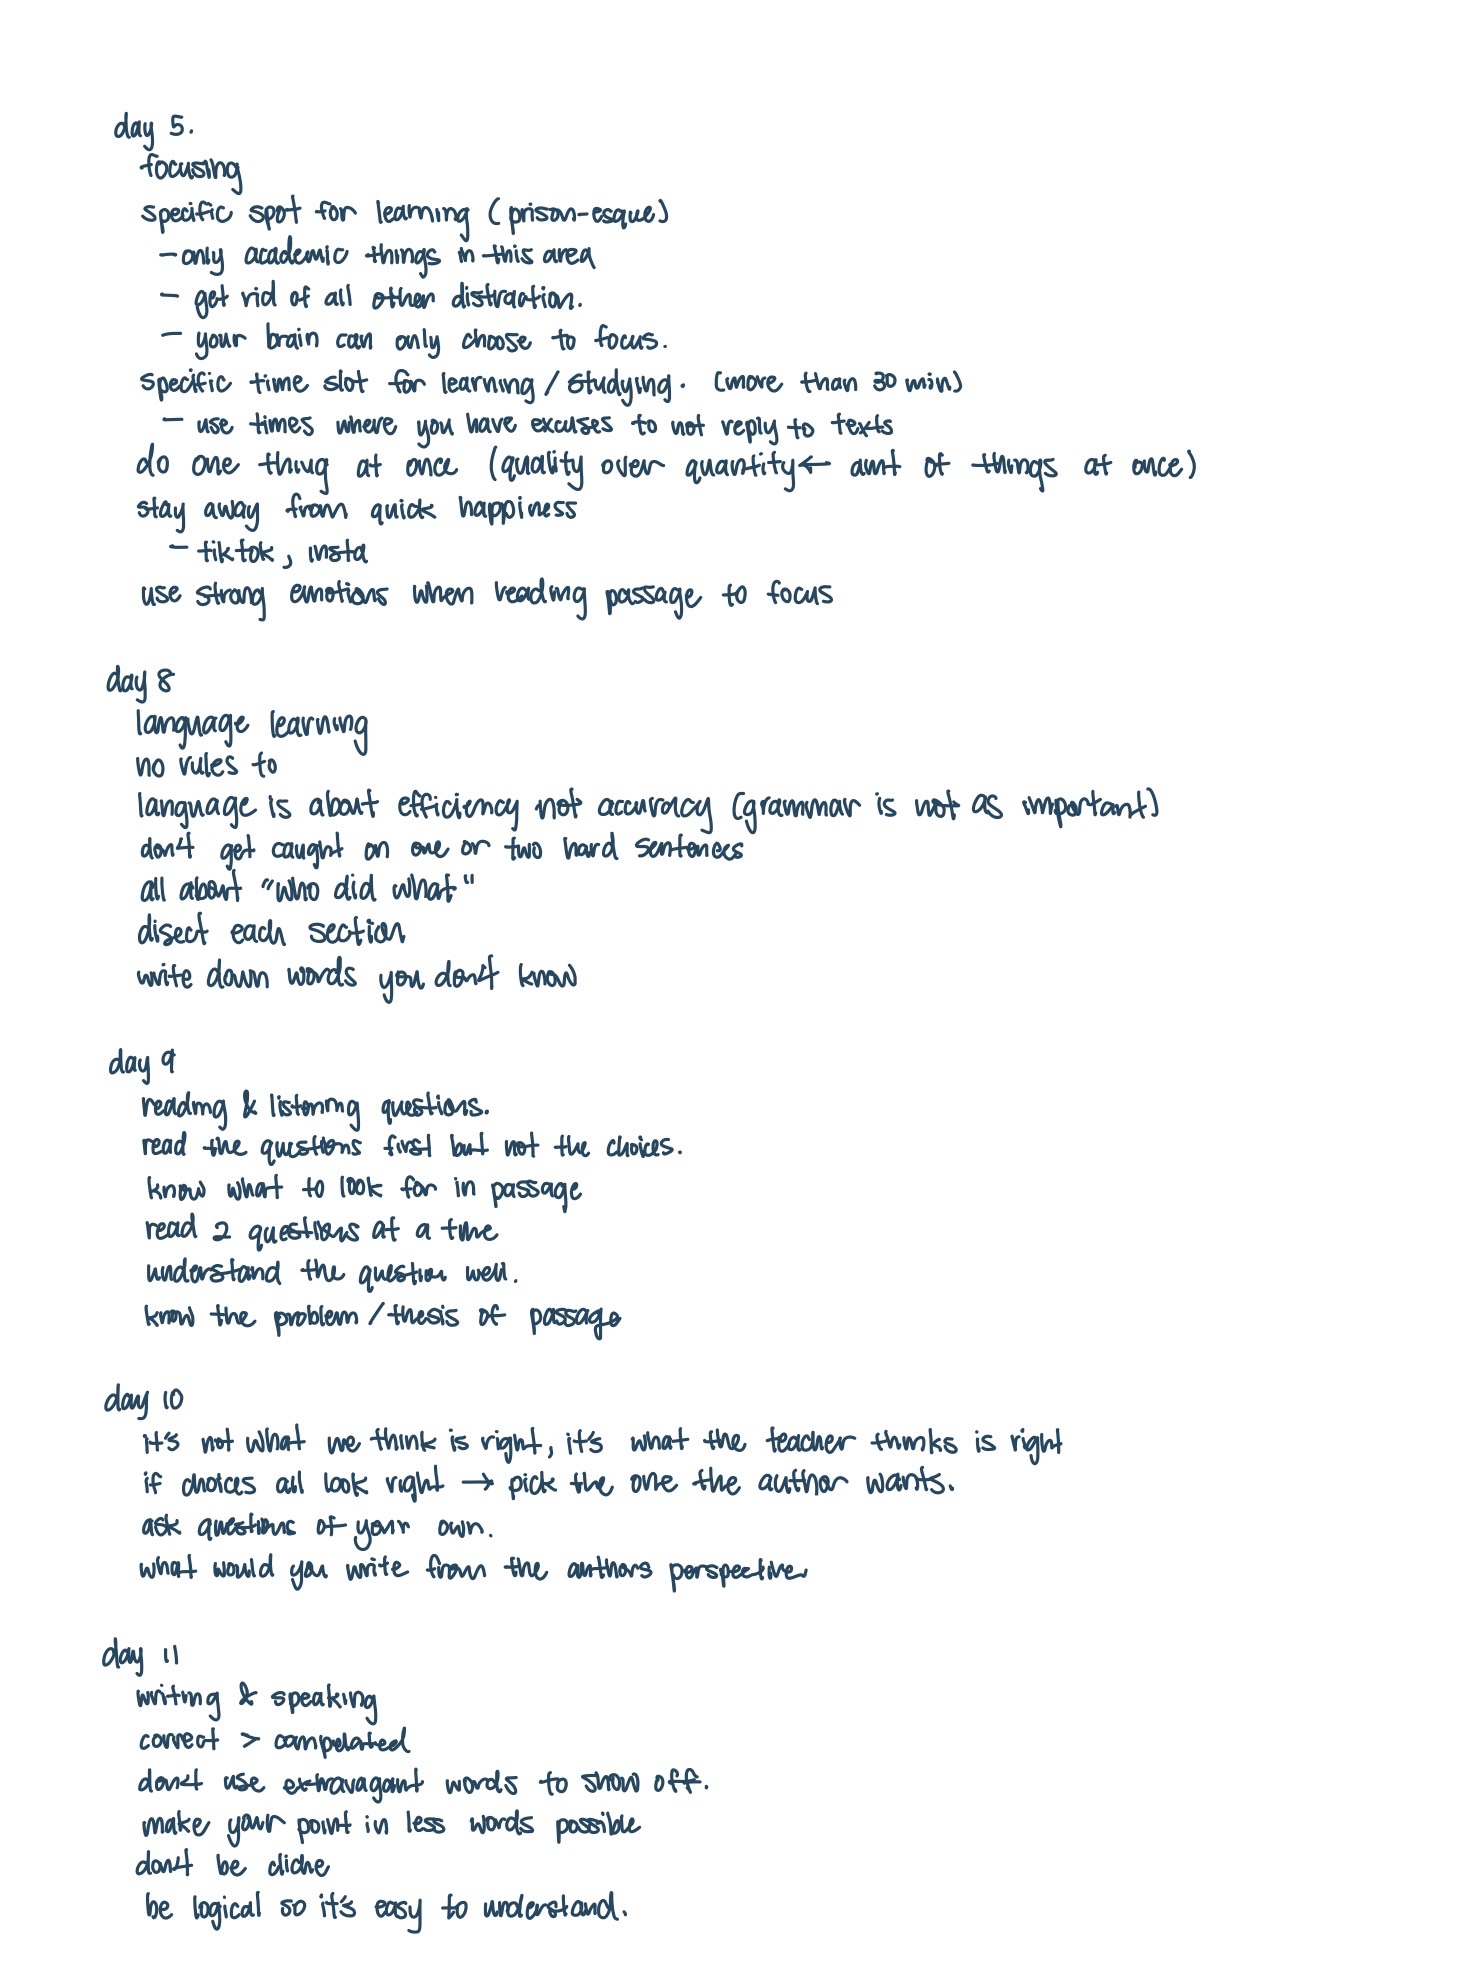 day 5.
focusing
specific spot for learning (prison-esque)
- only academic things in this area
- get rid of all other distraction.
- your brain can only choose to focus.
specific time slot for learning / studying. (more than 30 min)
- use times where you have excuses to not reply to texts
do one thing at once (quality over quantity ← amt of things at once)
stay away from quick happiness
- tiktok, insta
use strong emotions when reading passage to focus
day 8
language learning
no rules to
language is about efficiency not accuracy (grammar is not as important)
don't get caught on one or two hard sentences
all about "who did what"
disect each section
write down words you don't know
day 9
reading & listening questions.
read the questions first but not the choices.
know what to look for in passage
read 2 questions at a time
understand the question well.
know the problem / thesis of passage
day 10
it's not what we think is right, it's what the teacher thinks is right
if choices all look right → pick the one the author wants.
ask questions of your own.
what would you write from the authors perspective
day 11
writing & speaking
correct > compelated
don't use extravagant words to show off.
make your point in less words possible
don't be cliche
be logical so it's easy to understand.